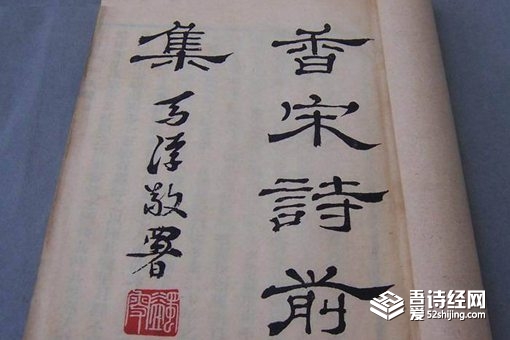 香宋詩前
集
敬署
吾爱诗经网
52shijing.com